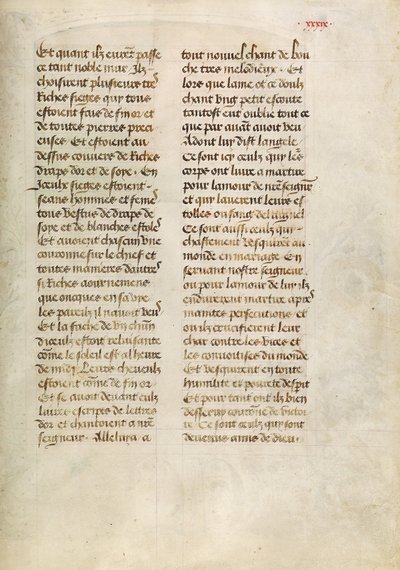 xxxix
Et quant ilz eurẽt passe
ce tant noble mur Ilz
choisirent plusieurs tres
Riches sieges qui tous
estoient fais de fin or et
de toutes pierres preci
euses Et estoient au
dessus couuers de Riches
draps dor et de soye. En
Iceulx sieges estoient
seans hommes et femes
tous vestus de draps de
soye et de blanches estoles
Et auoient chascun vne
couronne sur le chief et
toutes manieres dautres
si Riches aournemens
que oncques en sa vie
les pareilz il nauoit veu
Et la face de vng chũn
diceulx estoit reluisante
comme le soleil est al heure
de midj Leurs cheueulx
estoient cõme de fin or
Et se auoit deuant eulx
liures escripts de lettres
dor et chantoient a nrẽ
seigneur Alleluya a
tout nouuel chant de bou
che tres melodieux. Et
lors que lame et ce doulx
chant vng petit escoute
tantost eut oublie tout ce
que par auãt auoit veu
Adont luy dist langele
Ce sont icy ceulx qui les
corps ont liure a martire
pour lamour de nrẽ seigneur
et qui lauerent leurs es
tolles ou sang de laignel
Ce sont aussi ceulx qui
chastement vesquirẽt au
monde en mariage En
seruant nostre seigneur
ou pour lamour de luy ilz
endurerent martire apres
maintes persecutions et
ou ilz crucifierent leur
char contre les vices et
les conuoitises du monde
Et vesquirent en toute
humilite et pourete desperit
Et pour tant ont ilz bien
desseruy couronne de victoi
re Ce sont ceulx qui sont
deuenus amis de dieu.